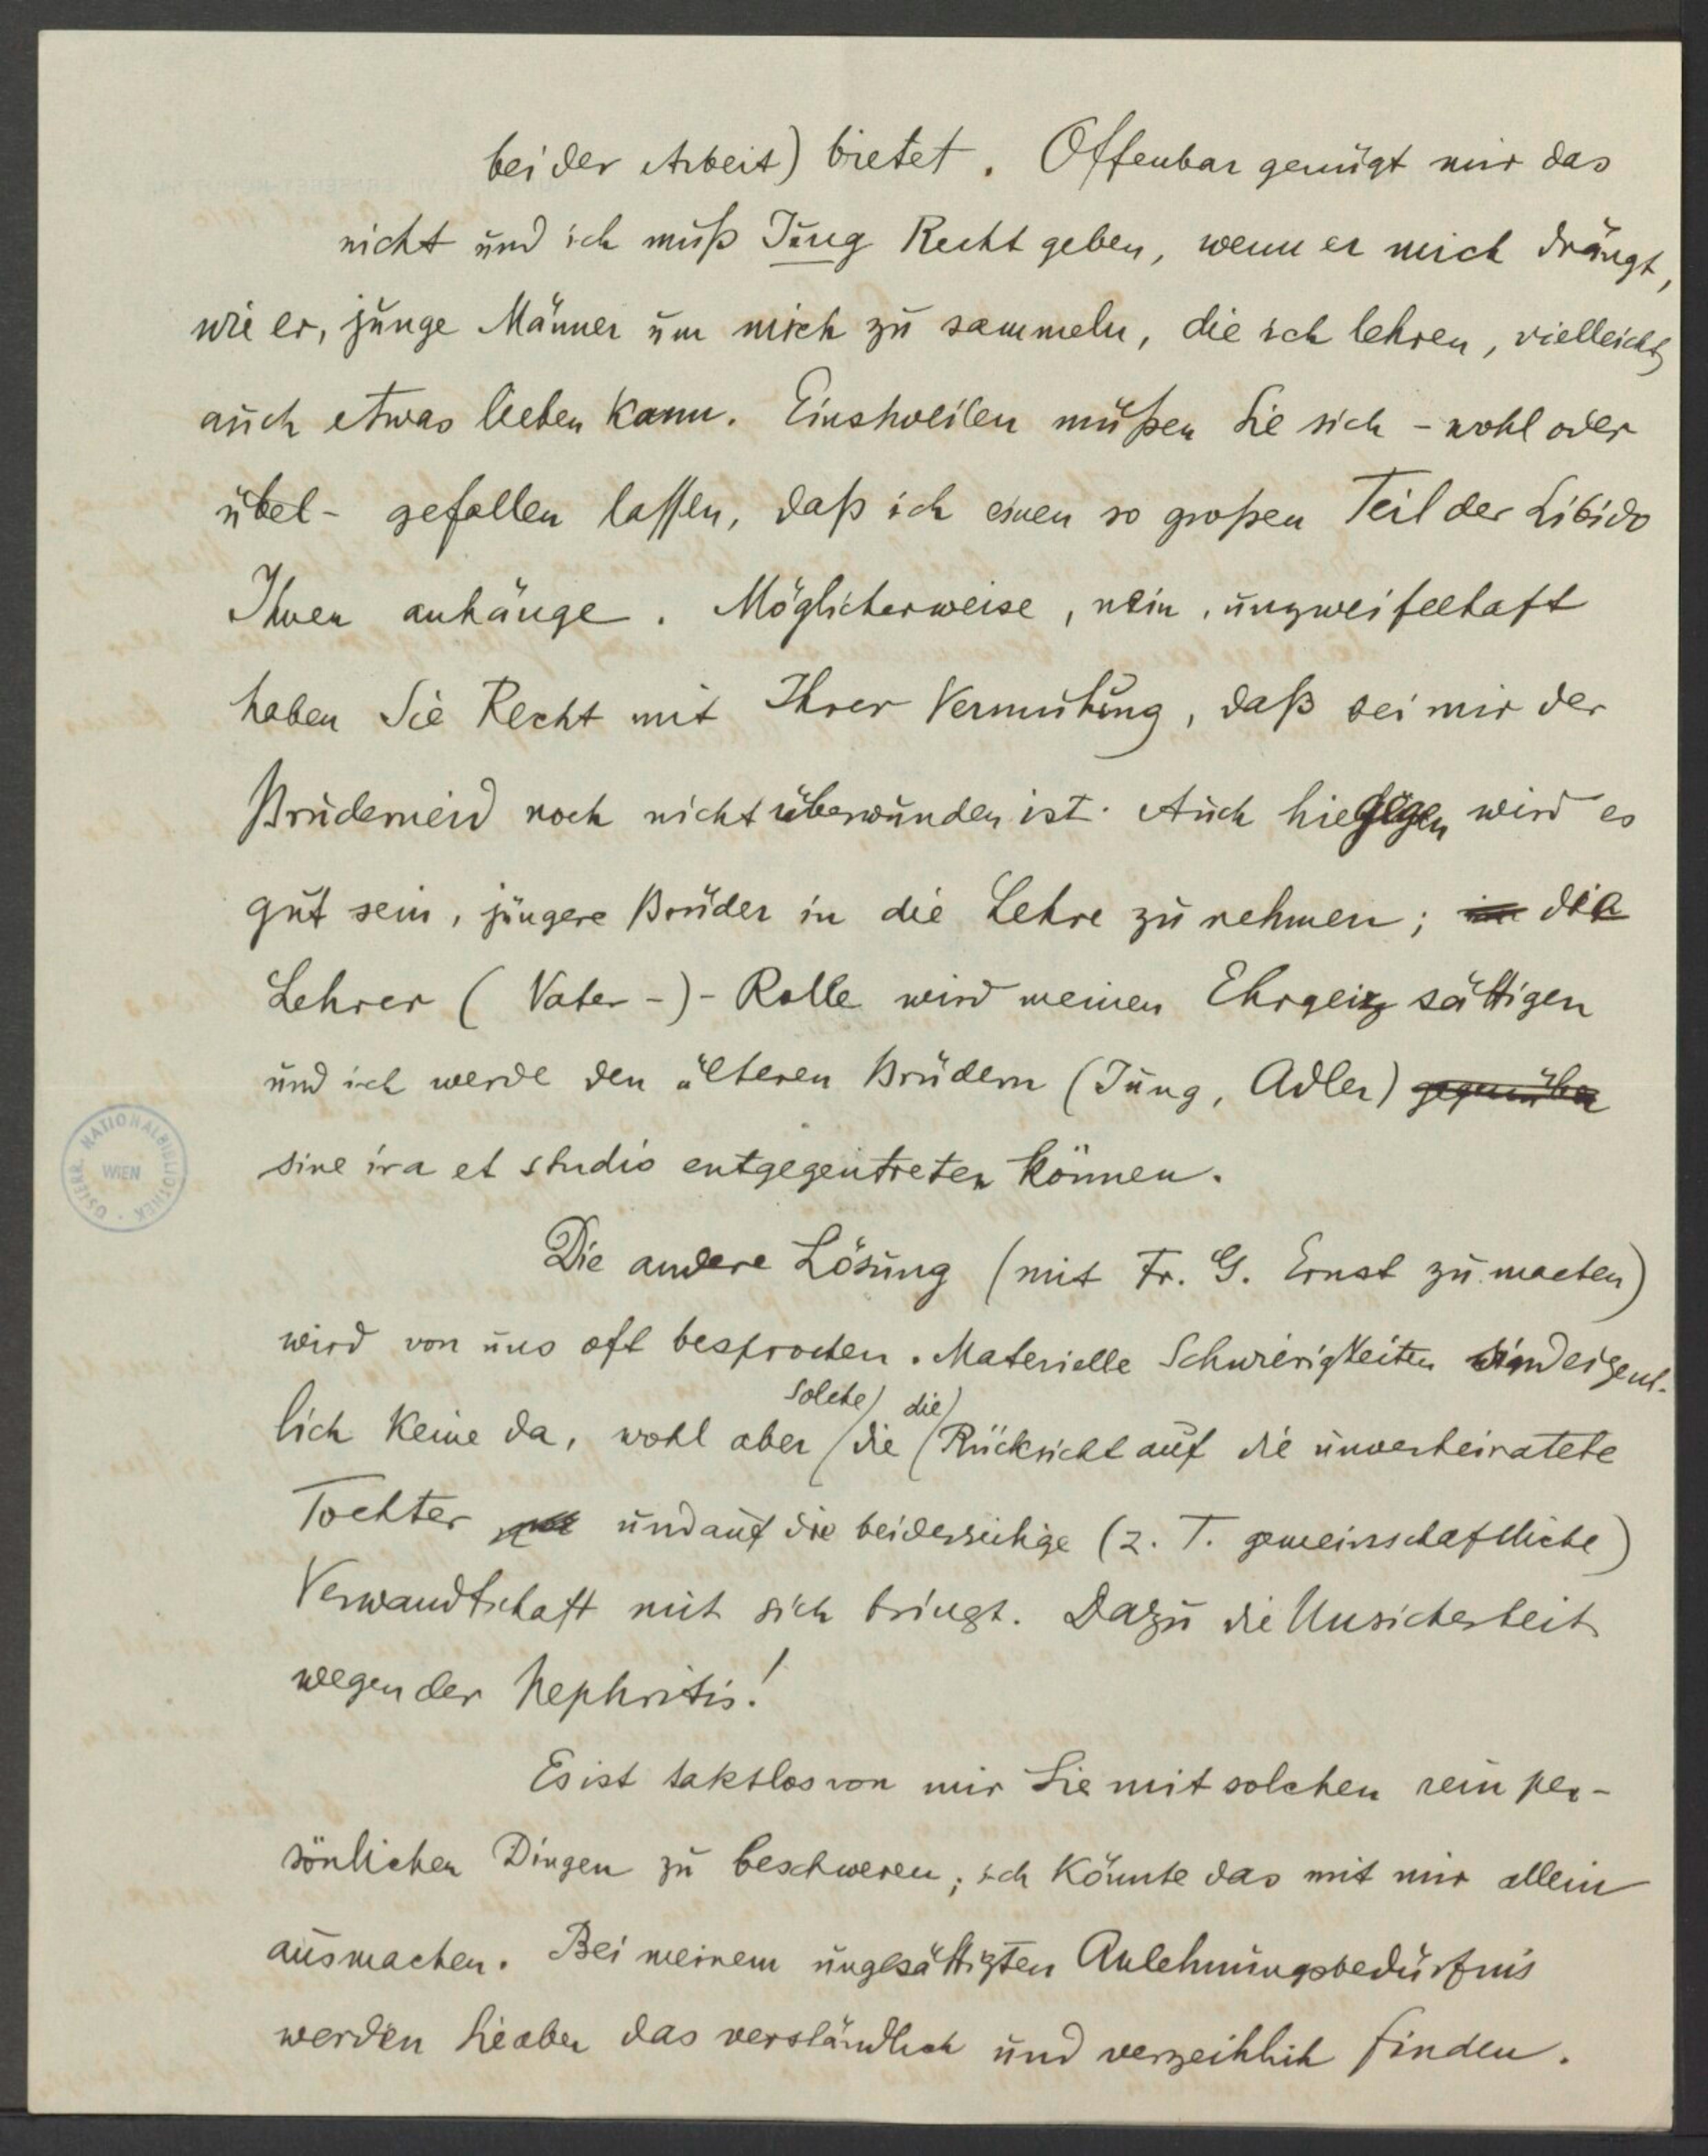 bei der Arbeit) bietet. Offenbar genügt mir das
nicht und ich muß Jung Recht geben, wenn er mich drängt,
wie er, junge Männer um mich zu sammeln, die ich lehren, vielleicht
auch etwas lieben kann. Einstweilen müßen Sie sich - wohl oder
übel - gefallen lassen, daß ich einen so großen Teil der Libido
Ihnen anhänge. Möglicherweise, nein, unzweifelhaft
haben Sie Recht mit Ihrer Vermutung, daß bei mir der
Bruderneid noch nicht überwunden ist. Auch hiegegen wird es
gut sein, jüngere Brüder in die Lehre zu nehmen; die
Lehrer (Vater-)-Rolle wird meinen Ehrgeiz sättigen
und ich werde den älteren Brüdern (Jung, Adler) gegenüber
sine ira et studio entgegentreten können.
Die andere Lösung (mit Fr. G. Ernst zu machen)
wird von uns oft besprochen. Materielle Schwierigkeiten sind eigent-
solche die
lich keine da, wohl aber die Rücksicht auf die unverheiratete
Tochter und auf die beiderseitige (z. T. gemeinschaftliche)
Verwandtschaft mit sich bringt. Dazu die Unsicherheit
wegen der Nephritis!
Es ist taktlos von mir Sie mit solchen rein per-
sönlichen Dingen zu beschweren; ich könnte das mit mir allein
ausmachen. Bei meinem ungesättigten Anlehnungsbedürfnis
werden Sie aber das verständlich und verzeihlich finden.
ÖSTERR. NATIONALBIBLIOTHEK
WIEN